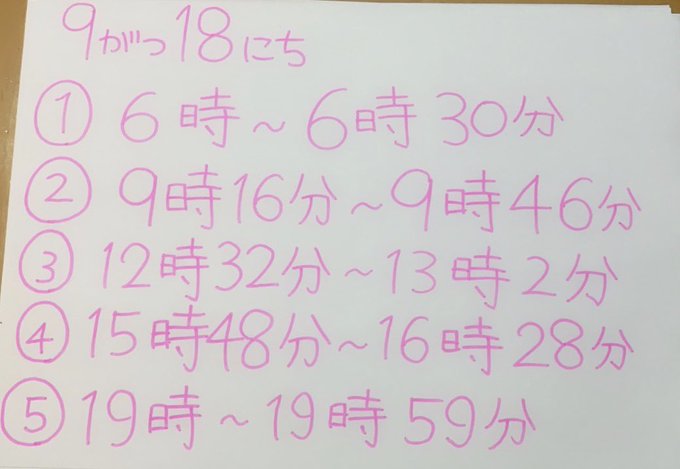 9がつ18にち
① 6時~6時30分
② 9時16分~9時46分
③ 12時32分~13時2分
④ 15時48分~16時28分
⑤ 19時~19時59分